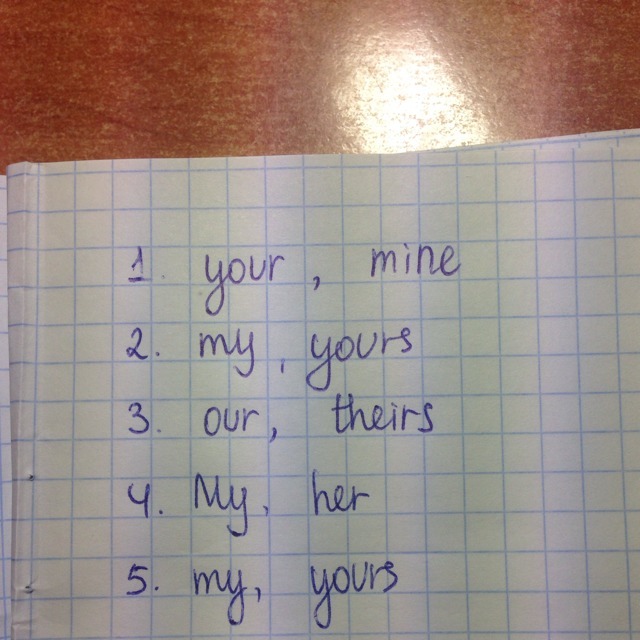 1. your, mine
2. my, yours
3. our, theirs
4. My, her
5. my, yours